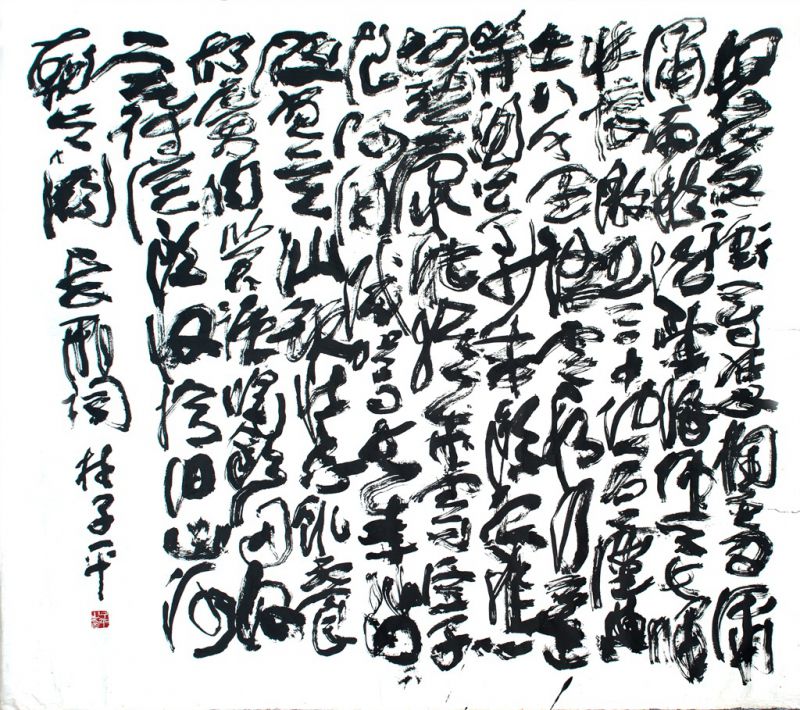 怒髮衝冠憑欄處瀟
瀟雨歇抬望眼仰天長嘯
壯懷激烈三十功名塵與
土八千里路雲和月莫
等閒白了少年頭空悲
切靖康恥猶未雪臣子
恨何時滅駕長車踏
破賀蘭山缺壯志飢餐
胡虜肉笑談渴飲匈奴
血待從頭收拾舊山河
朝天闕 岳飛詞 桂子平